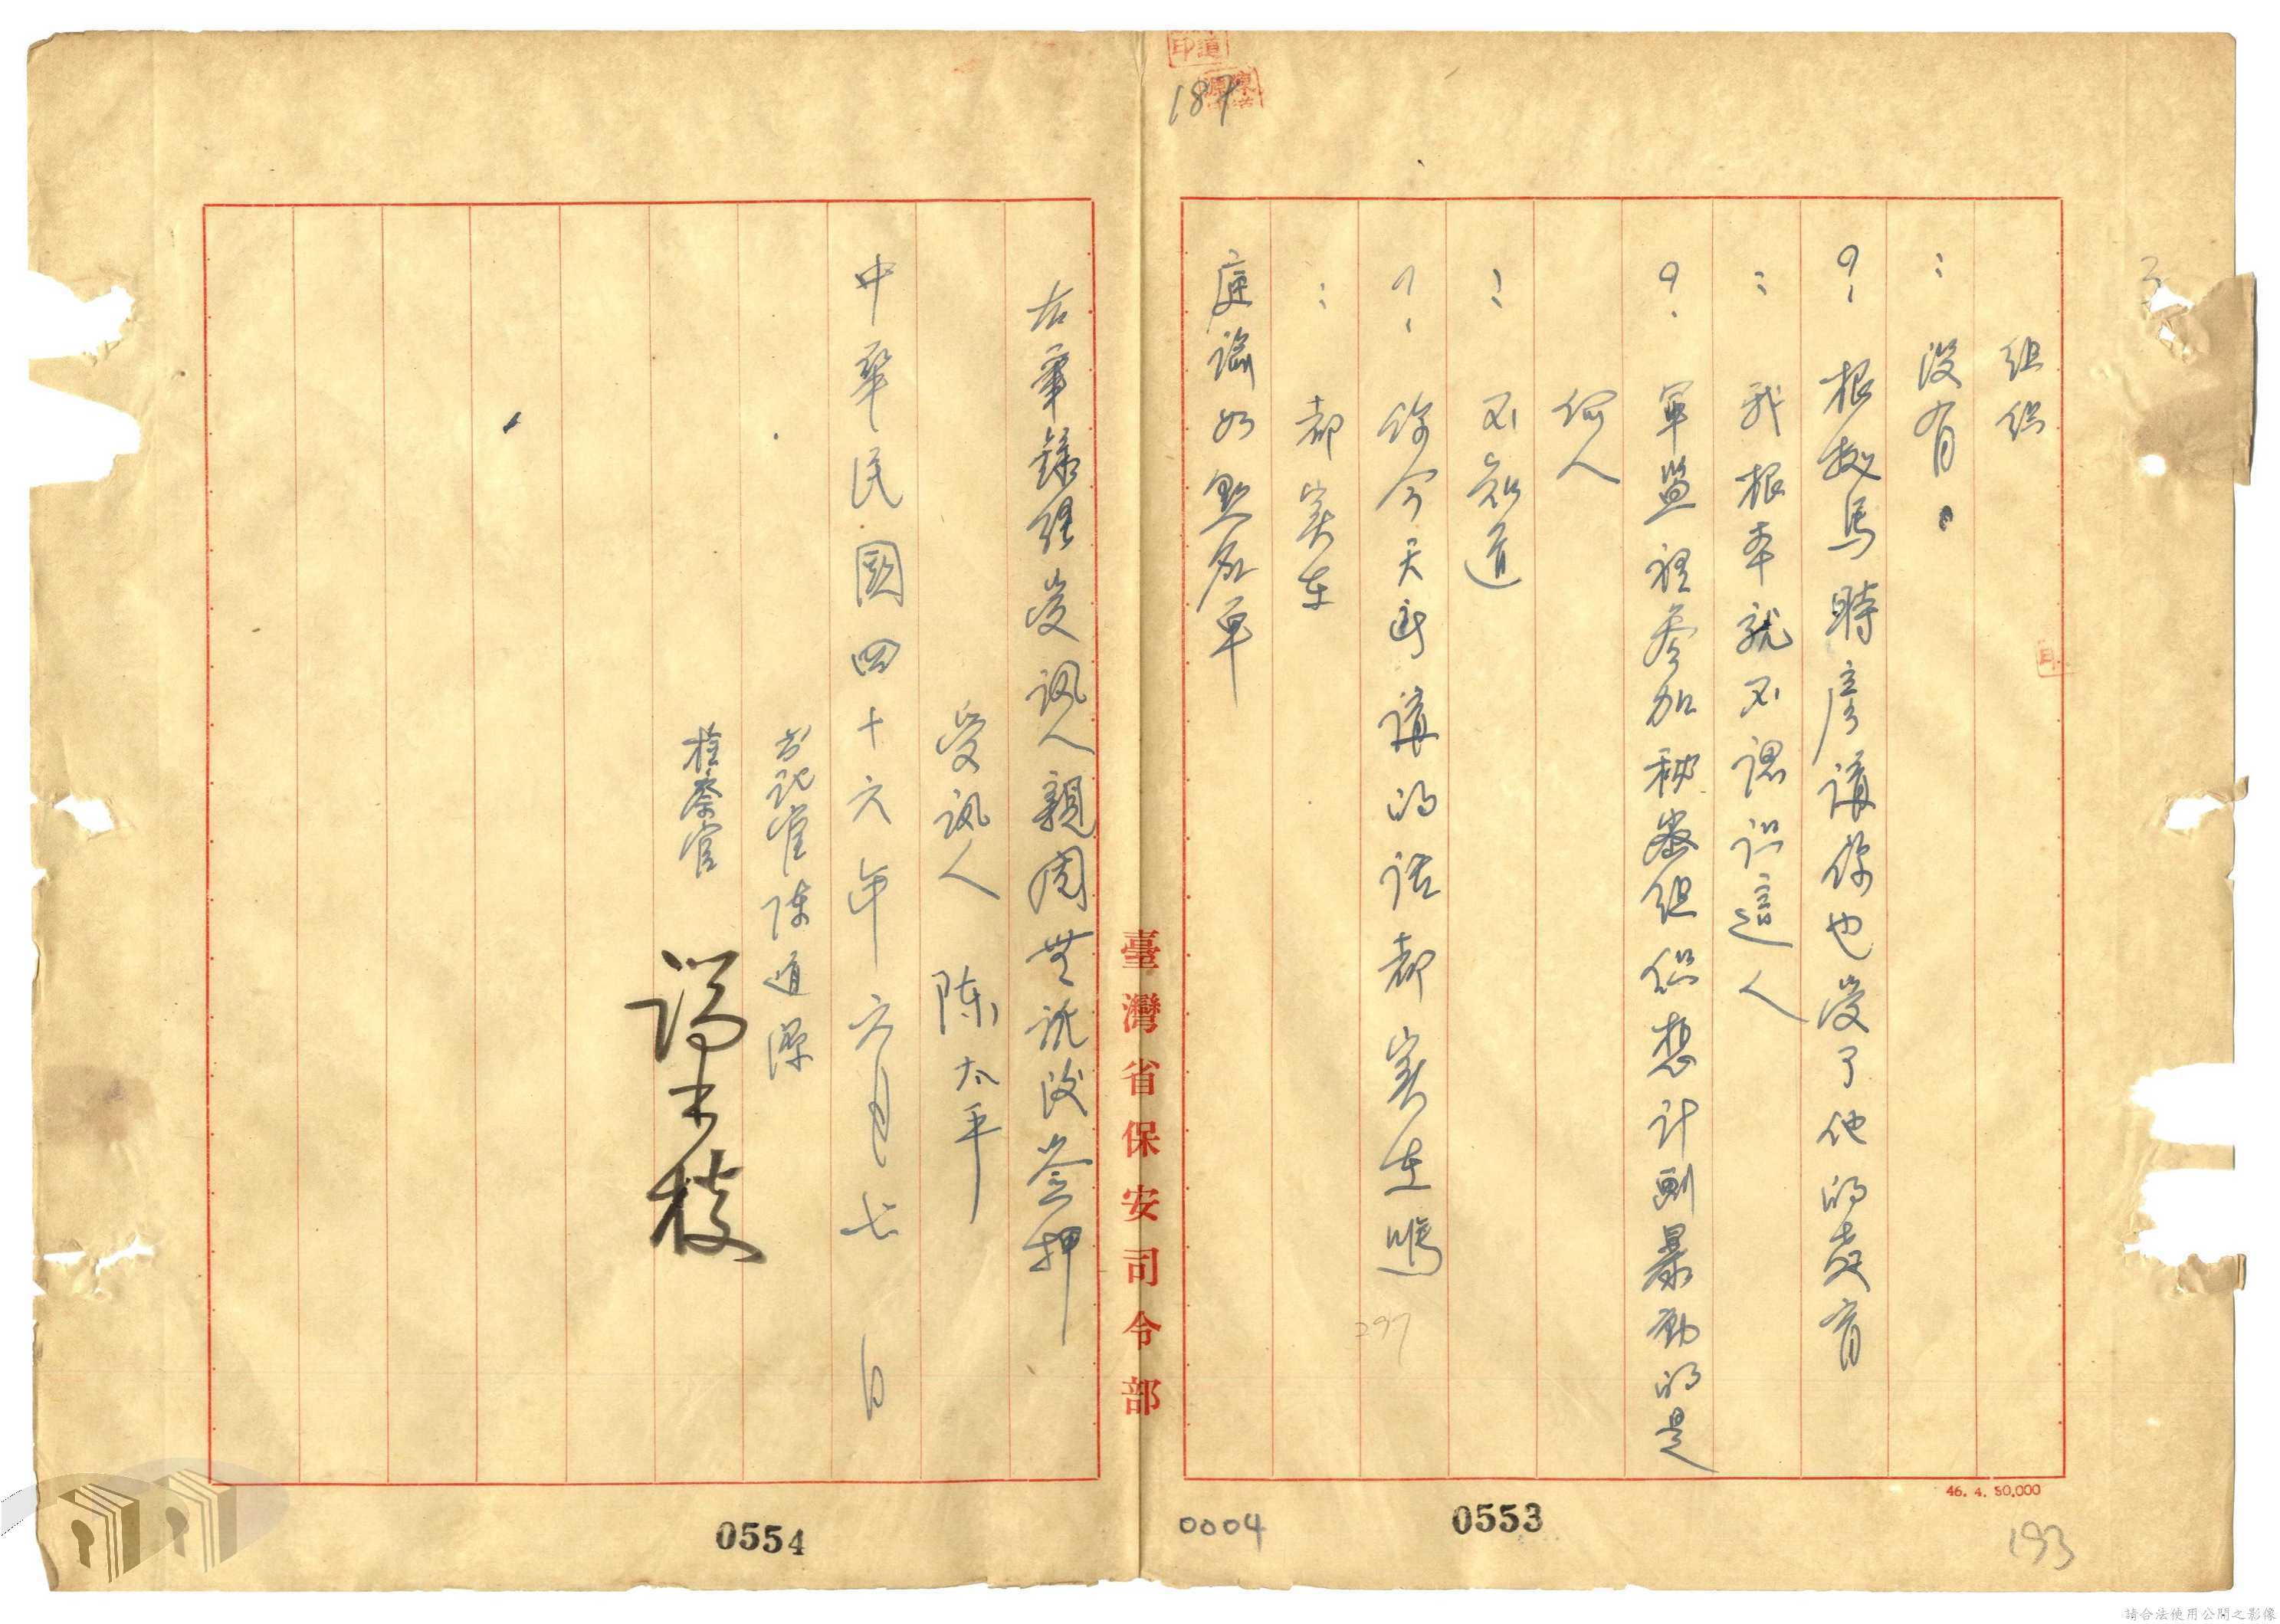 組织
：没有。
？根拠馬時彦講你也受了他的教育
：我根本就不認识這人
？軍监裡參加秘密組织想計劃暴動的是
何人
：不知道
？你今天所講的话都寔在嗎
：都寔在
庭諭如點名單
右筆錄經受訊人親閱無訛後簽押
受訊人 陈太平
中華民國四十六年六月七日
书记官陳道源
检察官
臺灣省保安司令部
187
193
297
0004
0553
0554
46. 4. 50,000
請合法使用公開之影像